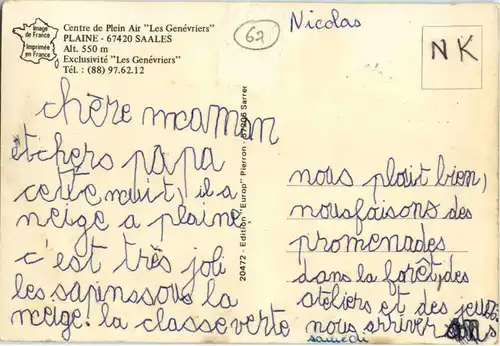 Image
de France
Imprimée
en France
Centre de Plein Air "Les Genévriers"
PLAINE - 67420 SAALES
Alt. 550 m
Exclusivité "Les Genévriers"
Tél. : (88) 97.62.12
67
Nicolas
NK
chère maman
et chers papa
cette nuit, il a
neige a plaine
c'est très joli
les sapins sous la
neige! la classe verte
20472 - Edition "Europ" Pierron - 57206 Sarrer
nous plait bien,
nous faisons des
promenades
dans la forêt, des
ateliers et des jeux.
nous arriver
samedi